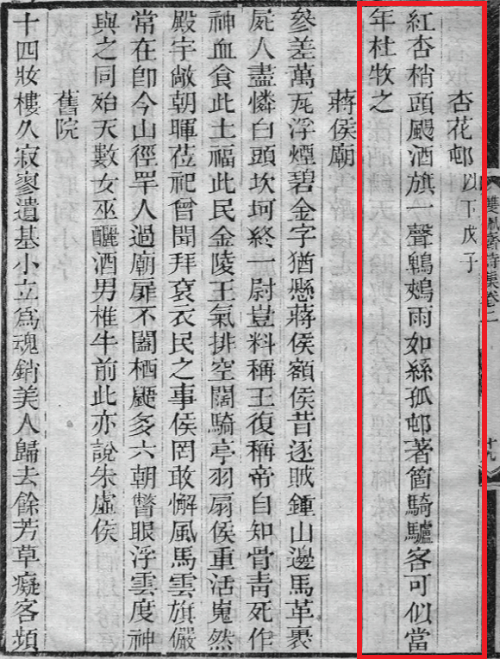 杏花邨以下戊子
紅杏梢頭颺酒旗一聲鵯鵊雨如絲孤邨著箇騎驢客可似當
年杜牧之
蔣侯廟
參差萬瓦浮煙碧金字猶懸蔣侯額侯昔逐賊鍾山邊馬革裹
屍人盡憐白頭坎坷終一尉豈料稱王復稱帝自知骨青死作
神血食此土福此民金陵王氣排空闊騎亭羽扇侯重活嵬然
殿宇敞朝暉莅祀曾聞拜袞衣民之事侯罔敢懈風馬雲旗儼
常在卽今山徑罕人過廟扉不闔栖颷多六朝瞥眼浮雲度神
與之同殆天數女巫釃酒男椎牛前此亦說朱虛侯
舊院
十四妝樓久寂寥遺基小立爲魂銷美人歸去餘芳草癡客頻